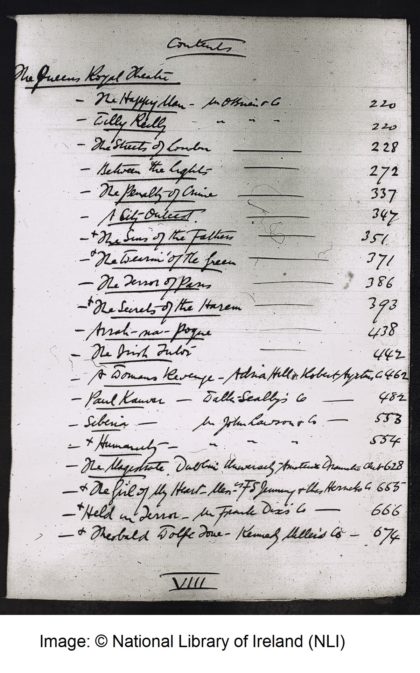 Contents
The Queens Royal Theatre
- The Happy Man - Mr O'Brien & Co 220
- Tilly Reilly " " " 220
- The Streets of London 228
- Between the Lights 272
- The Penalty of Crime 337
- A City Outcast 347
- + The Sins of the Fathers 351
- + The Wearin' of the Green 371
- The Terror of Paris 386
- + The Secrets of the Harem 393
- Arrah-na-Pogue 438
- The Irish Tutor 442
- A Womans Revenge - & Robert Ayrton Co 462
- Paul Kauvar - Dalla 482
- Siberia - Mr John Lawson & Co - 553
- + Humanity - " " " 554
- The Magistrate - Dublin University Amateur Dramatic 628
- + The Girl of My Heart - & Co 665
- + Held in Terror - Mr Frank Dix's Co - 666
- + Theobald Wolfe Tone - Kennedy Millers Co - 674
VIII
Image: © National Library of Ireland (NLI)